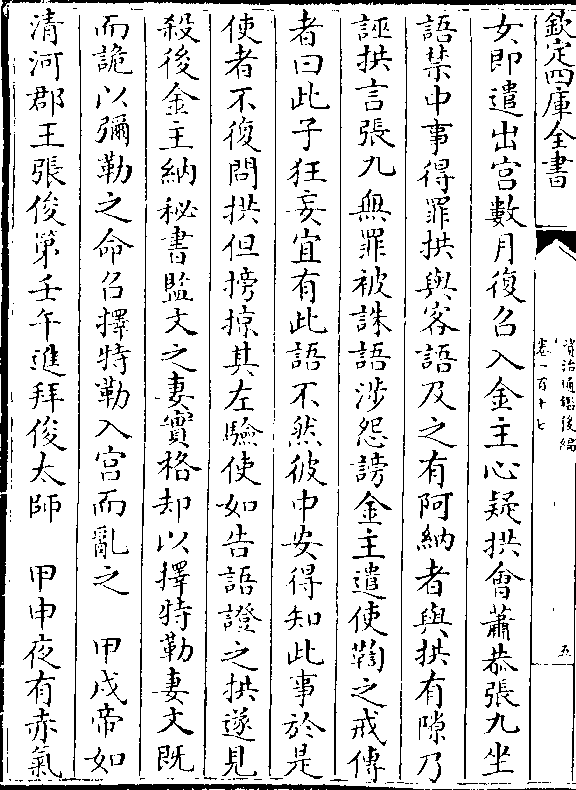 欽定四庫全書
資治通鑑後編
卷一百十七
五
女即遣出宮數月復召入金主心疑拱會蕭恭張九坐
語禁中事得罪拱與客語及之有阿納者與拱有隙乃
誣拱言張九無罪被誅語涉怨謗金主遣使鞫之戒傳
者曰此子狂妄宜有此語不然彼中安得知此事於是
使者不復問拱但搒掠其左驗使如告語證之拱遂見
殺後金主納秘書監文之妻實格却以擇特勒妻文既
而詭以彌勒之命召擇特勒入宮而亂之　甲戌帝如
清河郡王張俊第壬午進拜俊太師　甲申夜有赤氣